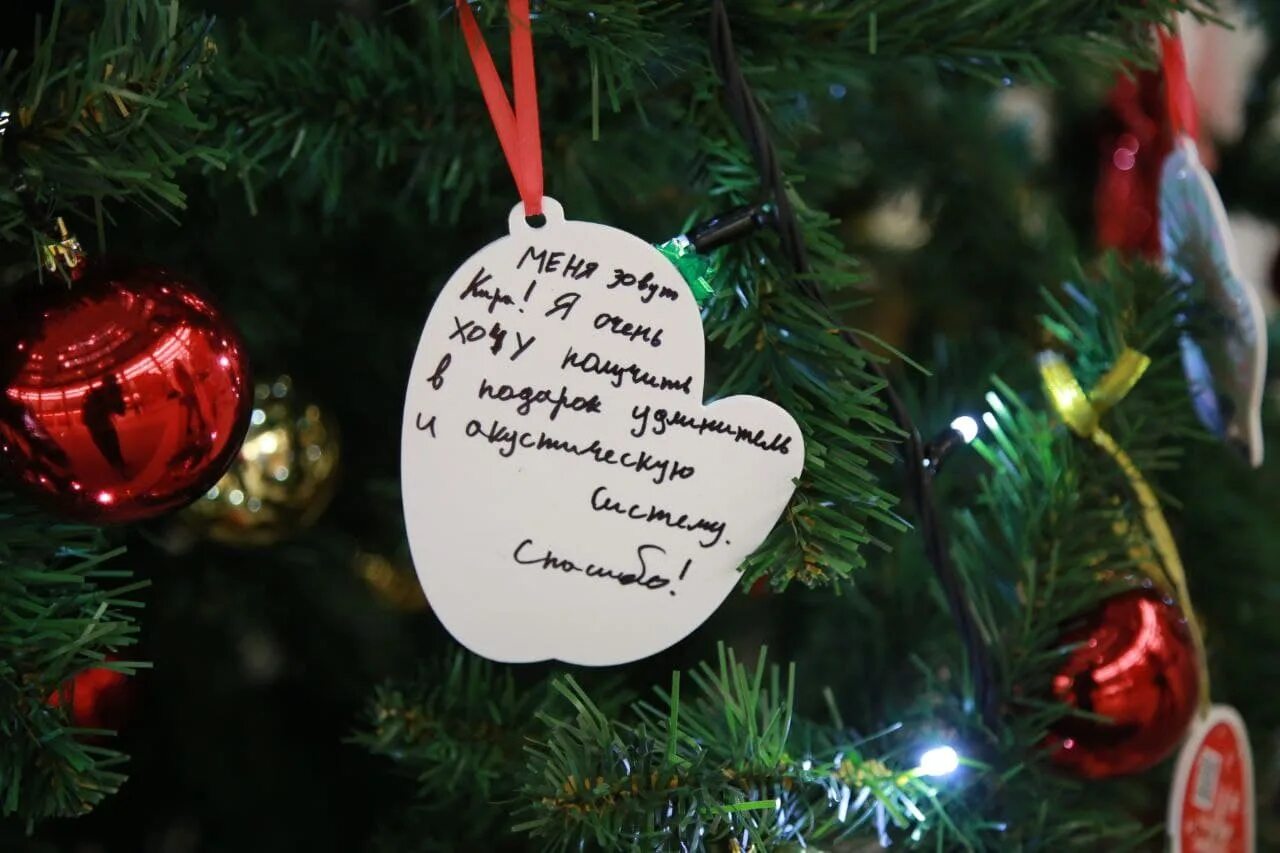 МЕНЯ зовут
Кира! Я очень
хочу получить
в подарок удлинитель
и акустическую
систему.
Спасибо!